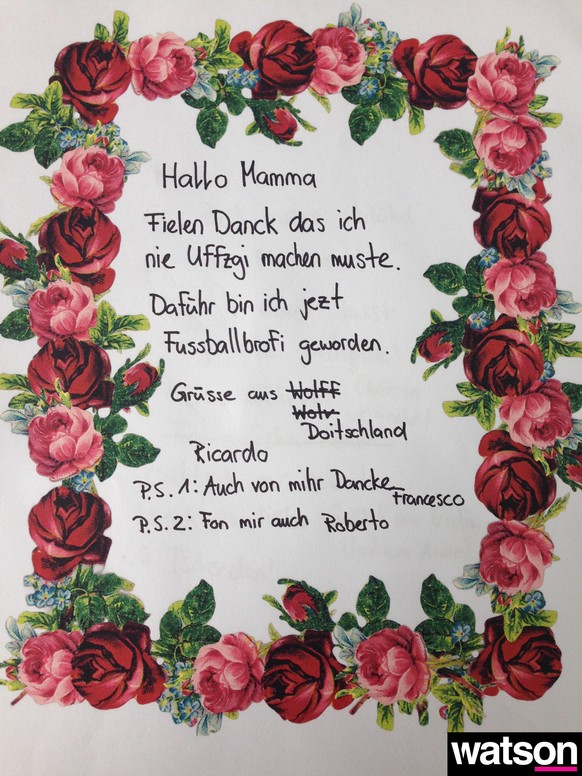 Hallo Mamma
Fielen Danck das ich
nie Uffzgi machen muste.
Daführ bin ich jezt
Fussballbrofi geworden.
Grüsse aus Wolff
Wolv
Doitschland
Ricardo
P.S. 1: Auch von mihr Dancke Francesco
P.S. 2: Fon mir auch Roberto
watson